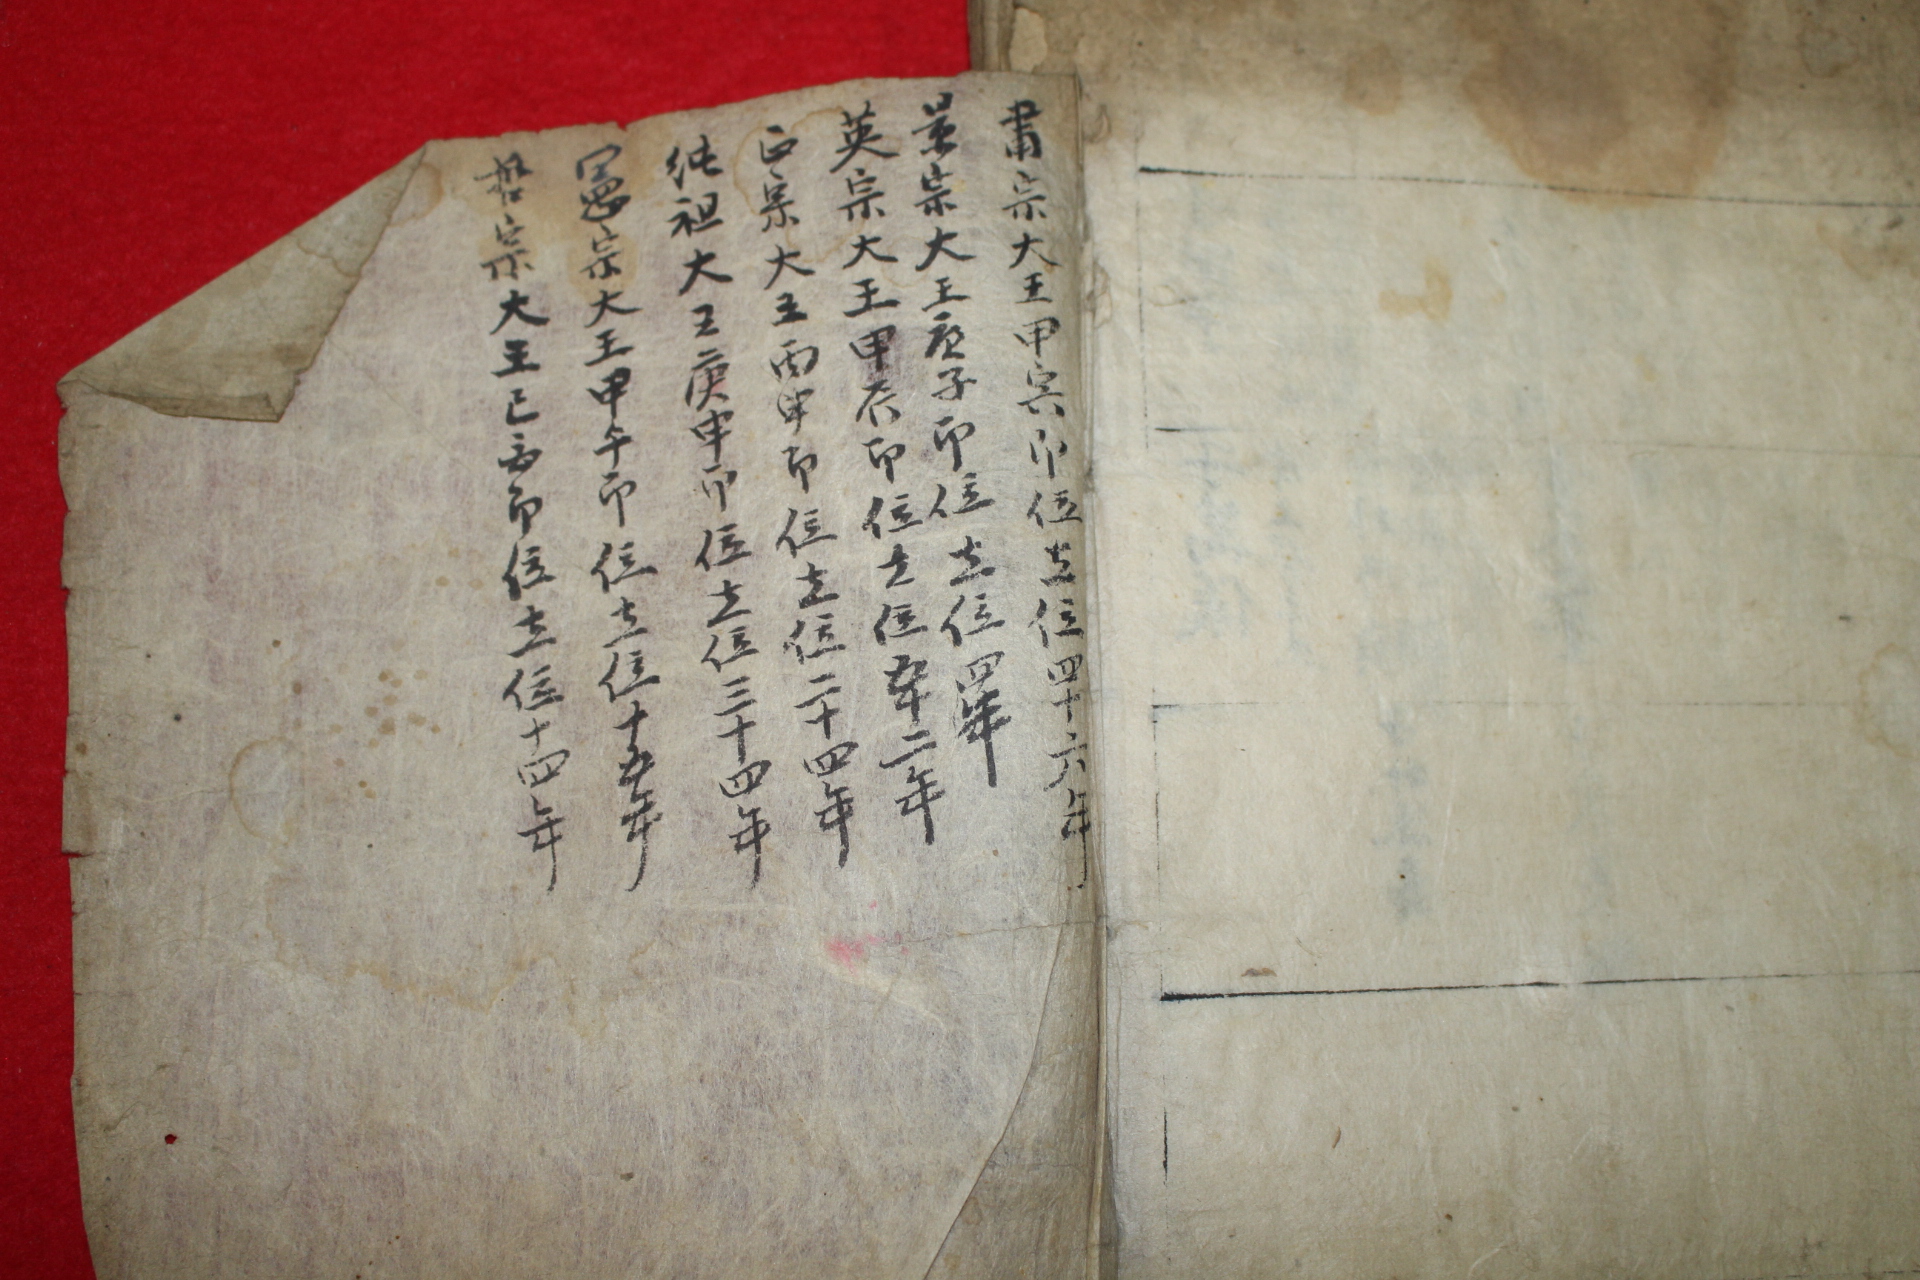 肅宗大王甲寅卽位在位四十六年
景宗大王庚子卽位在位四年
英宗大王甲辰卽位在位五十二年
正宗大王丙申卽位在位二十四年
純祖大王庚申卽位在位三十四年
憲宗大王甲午卽位在位十五年
哲宗大王己酉卽位在位十四年